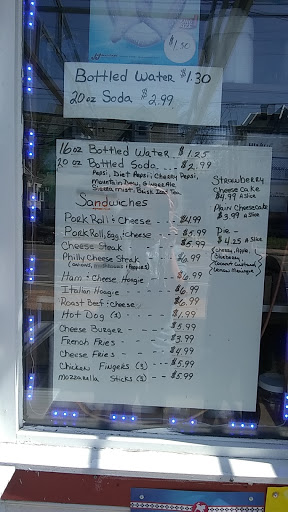 $1.50
Bottled Water $1.30
20 oz Soda $2.99
16 oz Bottled Water $1.25
20 oz Bottled Soda --- $2.99
Pepsi, Diet Pepsi, Cherry Pepsi,
Mountain Dew, Ginger Ale
Sierra mist, Brisk Iced Tea
Sandwiches
Pork Roll & Cheese --- $4.99
Pork Roll, Egg, & Cheese --- $5.99
Cheese Steak --- $5.99
Philly Cheese Steak --- $6.99
(onions, peppers)
Ham & Cheese Hoagie --- $6.99
Italian Hoagie --- $6.99
Roast Beef & Cheese --- $6.99
Hot Dog --- $4.99
Cheese Burger --- $5.99
French Fries --- $3.99
Cheese Fries --- $4.99
Chicken Fingers (3) --- $5.99
Mozzarella Sticks (3) --- $5.99
Strawberry
Cheese Cake
$4.99 a Slice
Plain Cheesecake
$3.99 a Slice
Pie --
$4.25 a Slice
Cherry, Apple,
Blueberry
Coconut Custard
Lemon Meringue